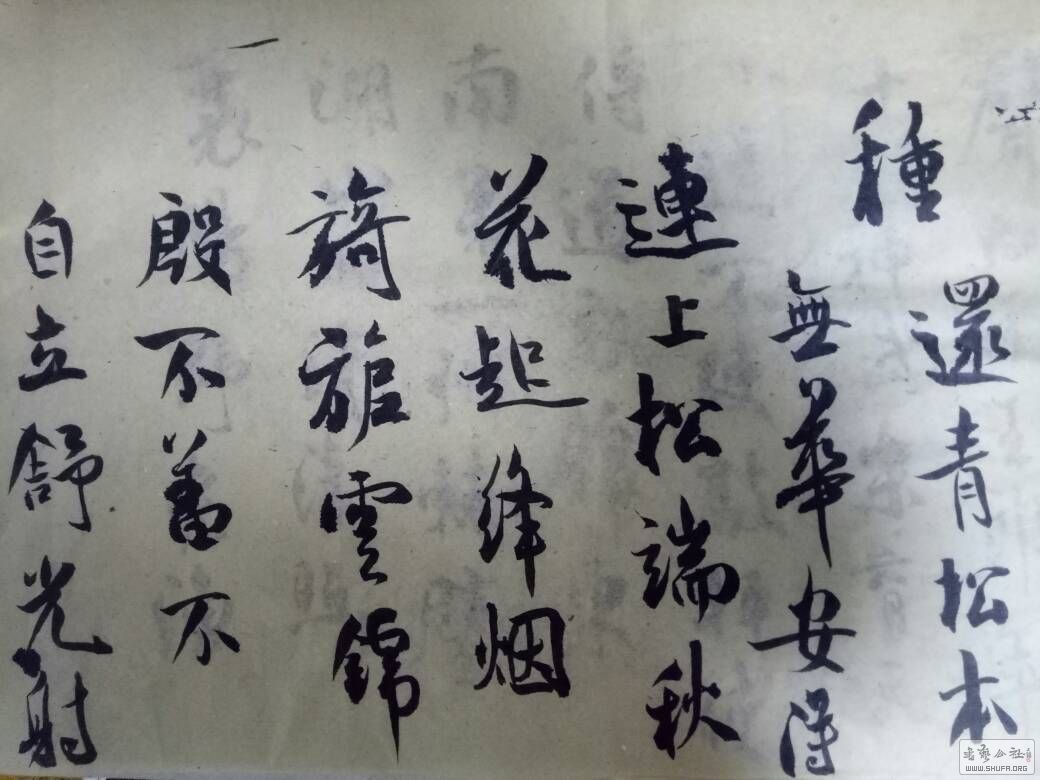 種
還青松本
無華安得
連上松端秋
花起絳烟
旖旎雲錦
殷不羞不
自立舒光射
书艺公社
WWW.SHUFA.ORG